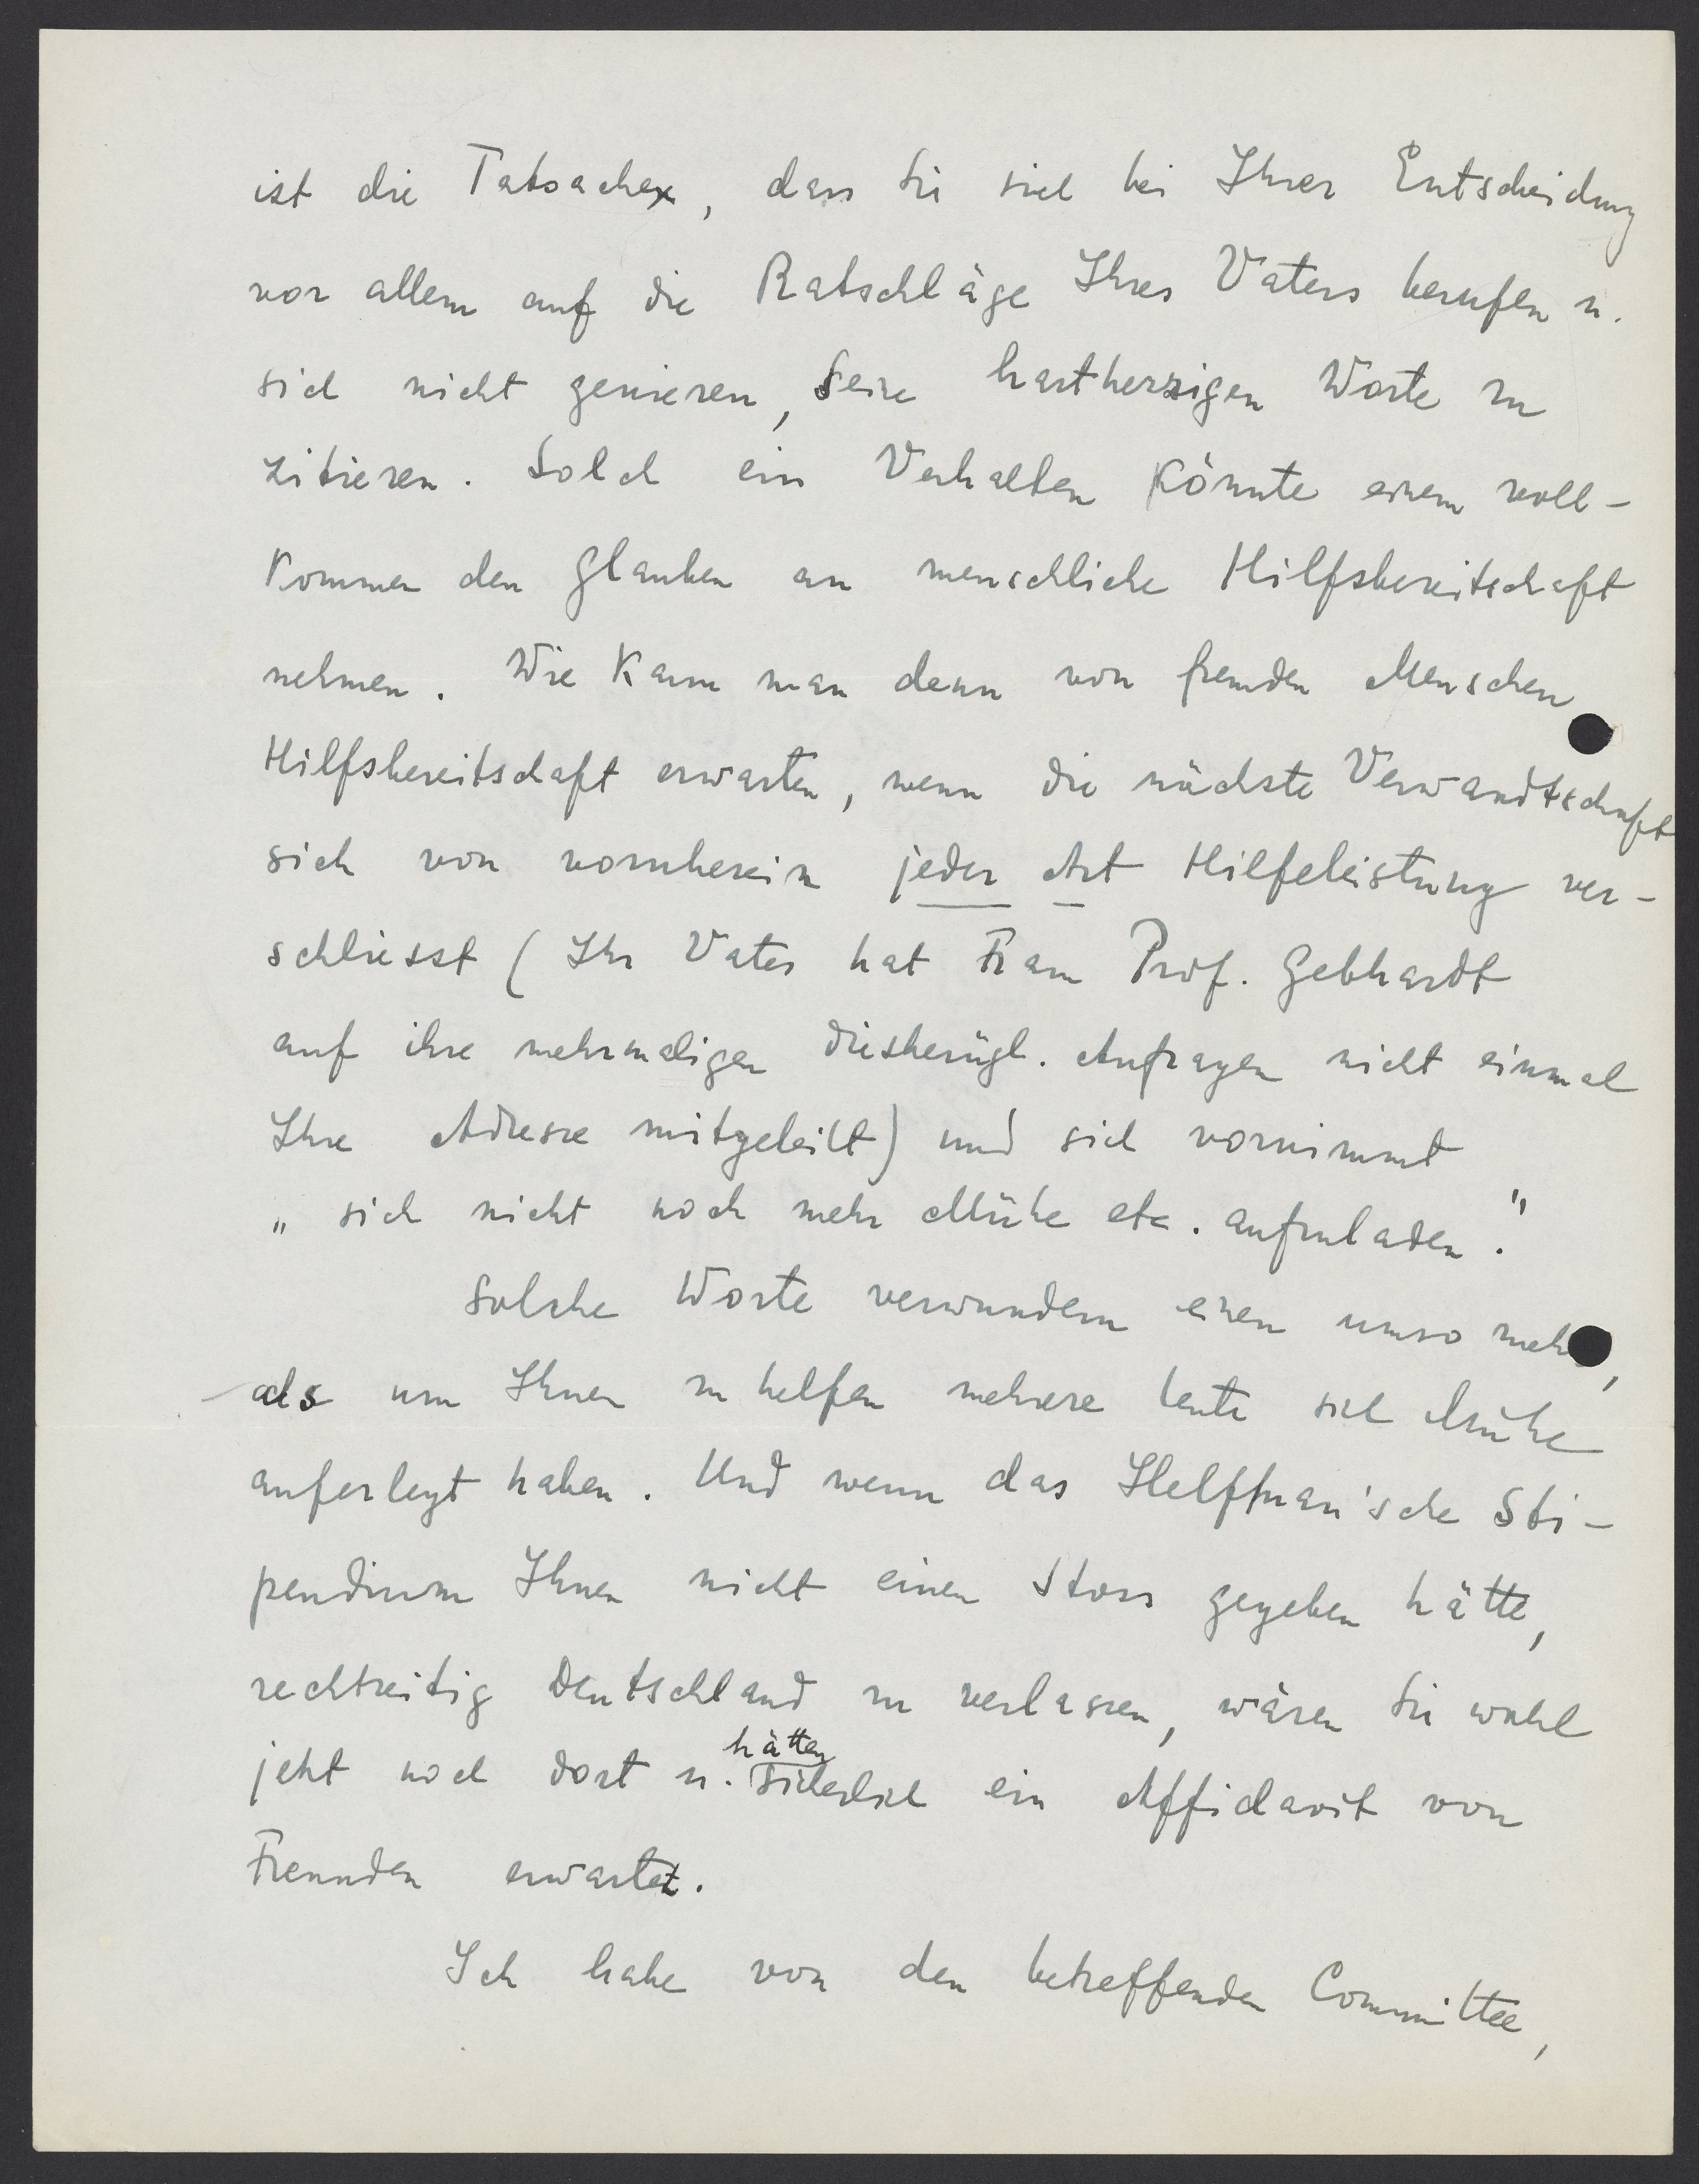 ist die Tatsache, dass Sie sich bei Ihrer Entscheidung
vor allem auf die Ratschläge Ihres Vaters berufen u.
sich nicht genieren, seine hartherzigen Worte zu
zitieren. Solch ein Verhalten könnte einem voll-
kommen den Glauben an menschliche Hilfsbereitschaft
nehmen. Wie kann man denn von fremden Menschen
Hilfsbereitschaft erwarten, wenn die nächste Verwandtschaft
sich von vornherein jeder Art Hilfeleistung ver-
schliesst (Ihr Vater hat Frau Prof. Gebhardt
auf ihre mehrmaligen diesbezügl. Anfragen nicht einmal
Ihre Adresse mitgeteilt) und sich vornimmt
„sich nicht noch mehr Mühe etc. aufzuladen."
Solche Worte verwundern einen umso mehr,
als um Ihnen zu helfen mehrere Leute sich Mühe
auferlegt haben. Und wenn das Helffman'sche Sti-
pendium Ihnen nicht einen Stoss gegeben hätte,
rechtzeitig Deutschland zu verlassen, wären Sie wohl
jetzt noch dort u. hätten sicherlich ein Affidavit von
Freunden erwartet.
Ich habe von den betreffenden Committee,